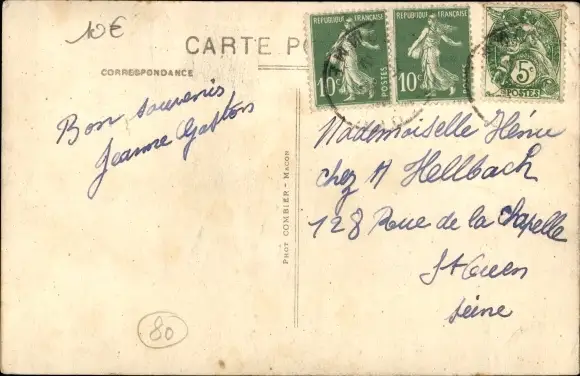 10€
CARTE PO
CORRESPONDANCE
REPUBLIQUE FRANÇAISE
10c
POSTES
REPUBLIQUE FRANÇAISE
10c
POSTES
5c
POSTES
Bon souvenir
Jeanne
PHOT COMBIER - MACON
Mademoiselle
chez A Hellbach
128 Rue de la Chapelle
St Ouen
Seine
80